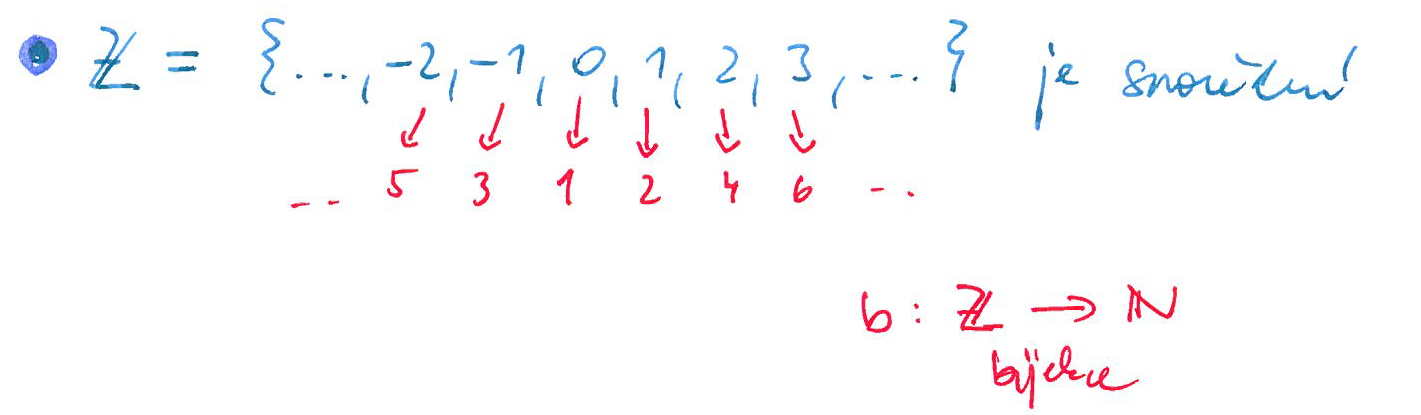 ℤ = {..., -2, -1, 0, 1, 2, 3, ...} je spočetná
↙ ↙ ↓ ↓ ↓ ↘
-- 5 3 1 2 4 6 -.
b : ℤ → ℕ
bijekce